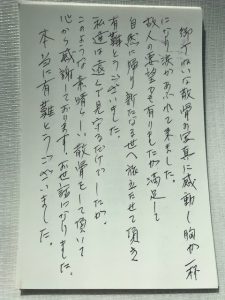 御丁ねいな散骨の写真に感動し胸が一杯
になり涙があふれて来ました。
故人の要望でも有りましたが満足して
自然に帰り新たなる世へ旅立たせて頂き
有難とうございました。
私達は遠くで見守るだけでしたが
このような素晴らしい散骨をして頂いて
心から感謝しております。お世話になりました。
本当に有難とうございました。